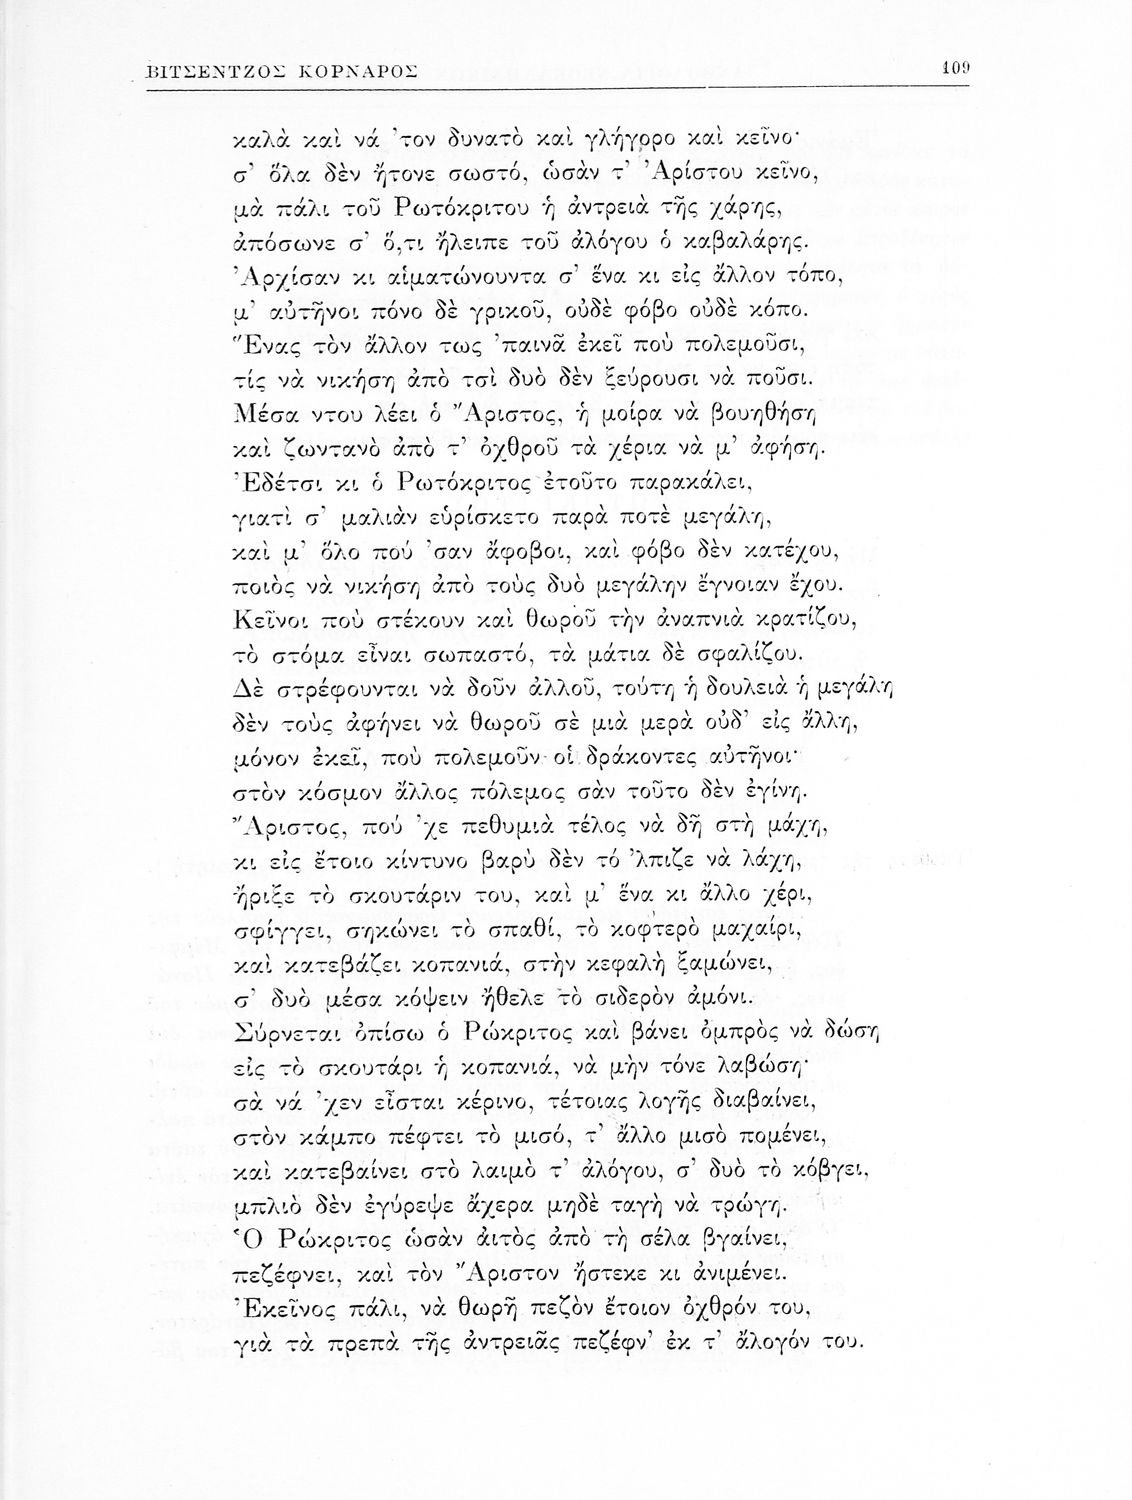 ΒΙΤΣΕΝΤΖΟΣ ΚΟΡΝΑΡΟΣ 109
καλὰ καὶ νά 'τον δυνατὸ καὶ γλήγορο καὶ κεῖνο·
σ' ὅλα δὲν ἤτονε σωστό, ὡσὰν τ' Ἀρίστου κεῖνο,
μὰ πάλι τοῦ Ρωτόκριτου ἡ ἀντρειὰ τῆς χάρης,
ἀπόσωνε σ' ὅ,τι ἤλειπε τοῦ ἀλόγου ὁ καβαλάρης.
Ἀρχίσαν κι αἱματώνουντα σ' ἕνα κι εἰς ἄλλον τόπο,
μ' αὐτῆνοι πόνο δὲ γρικοῦ, οὐδὲ φόβο οὐδὲ κόπο.
Ἕνας τὸν ἄλλον τως 'παινᾶ ἐκεῖ ποὺ πολεμοῦσι,
τίς νὰ νικήση ἀπὸ τσὶ δυὸ δὲν ξεύρουσι νὰ ποῦσι.
Μέσα ντου λέει ὁ Ἄριστος, ἡ μοίρα νὰ βουηθήση
καὶ ζωντανὸ ἀπὸ τ' ὀχθροῦ τὰ χέρια νὰ μ' ἀφήση.
Ἐδέτσι κι ὁ Ρωτόκριτος ἐτοῦτο παρακάλει,
γιατὶ σ' μαλιὰν εὑρίσκετο παρὰ ποτὲ μεγάλη,
καὶ μ' ὅλο πού 'σαν ἄφοβοι, καὶ φόβο δὲν κατέχου,
ποιὸς νὰ νικήση ἀπὸ τοὺς δυὸ μεγάλην ἔγνοιαν ἔχου.
Κεῖνοι ποὺ στέκουν καὶ θωροῦ τὴν ἀναπνιὰ κρατίζου,
τὸ στόμα εἶναι σωπαστό, τὰ μάτια δὲ σφαλίζου.
Δὲ στρέφουνται νὰ δοῦν ἀλλοῦ, τούτη ἡ δουλειὰ ἡ μεγάλη
δὲν τοὺς ἀφήνει νὰ θωροῦ σὲ μιὰ μερὰ οὐδ' εἰς ἄλλη,
μόνον ἐκεῖ, ποὺ πολεμοῦν οἱ δράκοντες αὐτῆνοι·
στὸν κόσμον ἄλλος πόλεμος σὰν τοῦτο δὲν ἐγίνη.
Ἄριστος, πού 'χε πεθυμιὰ τέλος νὰ δῆ στὴ μάχη,
κι εἰς ἔτοιο κίντυνο βαρὺ δὲν τό 'λπιζε νὰ λάχη,
ἤριξε τὸ σκουτάριν του, καὶ μ' ἕνα κι ἄλλο χέρι,
σφίγγει, σηκώνει τὸ σπαθί, τὸ κοφτερὸ μαχαίρι,
καὶ κατεβάζει κοπανιά, στὴν κεφαλὴ ξαμώνει,
σ' δυὸ μέσα κόψειν ἤθελε τὸ σιδερὸν ἀμόνι.
Σύρνεται ὀπίσω ὁ Ρώκριτος καὶ βάνει ὀμπρὸς νὰ δώση
εἰς τὸ σκουτάρι ἡ κοπανιά, νὰ μὴν τόνε λαβώση·
σὰ νά 'χεν εἶσται κέρινο, τέτοιας λογῆς διαβαίνει,
στὸν κάμπο πέφτει τὸ μισό, τ' ἄλλο μισὸ πομένει,
καὶ κατεβαίνει στὸ λαιμὸ τ' ἀλόγου, σ' δυὸ τὸ κόβγει,
μπλιὸ δὲν ἐγύρεψε ἄχερα μηδὲ ταγὴ νὰ τρώγη.
Ὁ Ρώκριτος ὡσὰν ἀιτὸς ἀπὸ τὴ σέλα βγαίνει,
πεζέφνει, καὶ τὸν Ἄριστον ἤστεκε κι ἀνιμένει.
Ἐκεῖνος πάλι, νὰ θωρῆ πεζὸν ἔτοιον ὀχθρόν του,
γιὰ τὰ πρεπὰ τῆς ἀντρειᾶς πεζέφν' ἐκ τ' ἄλογόν του.